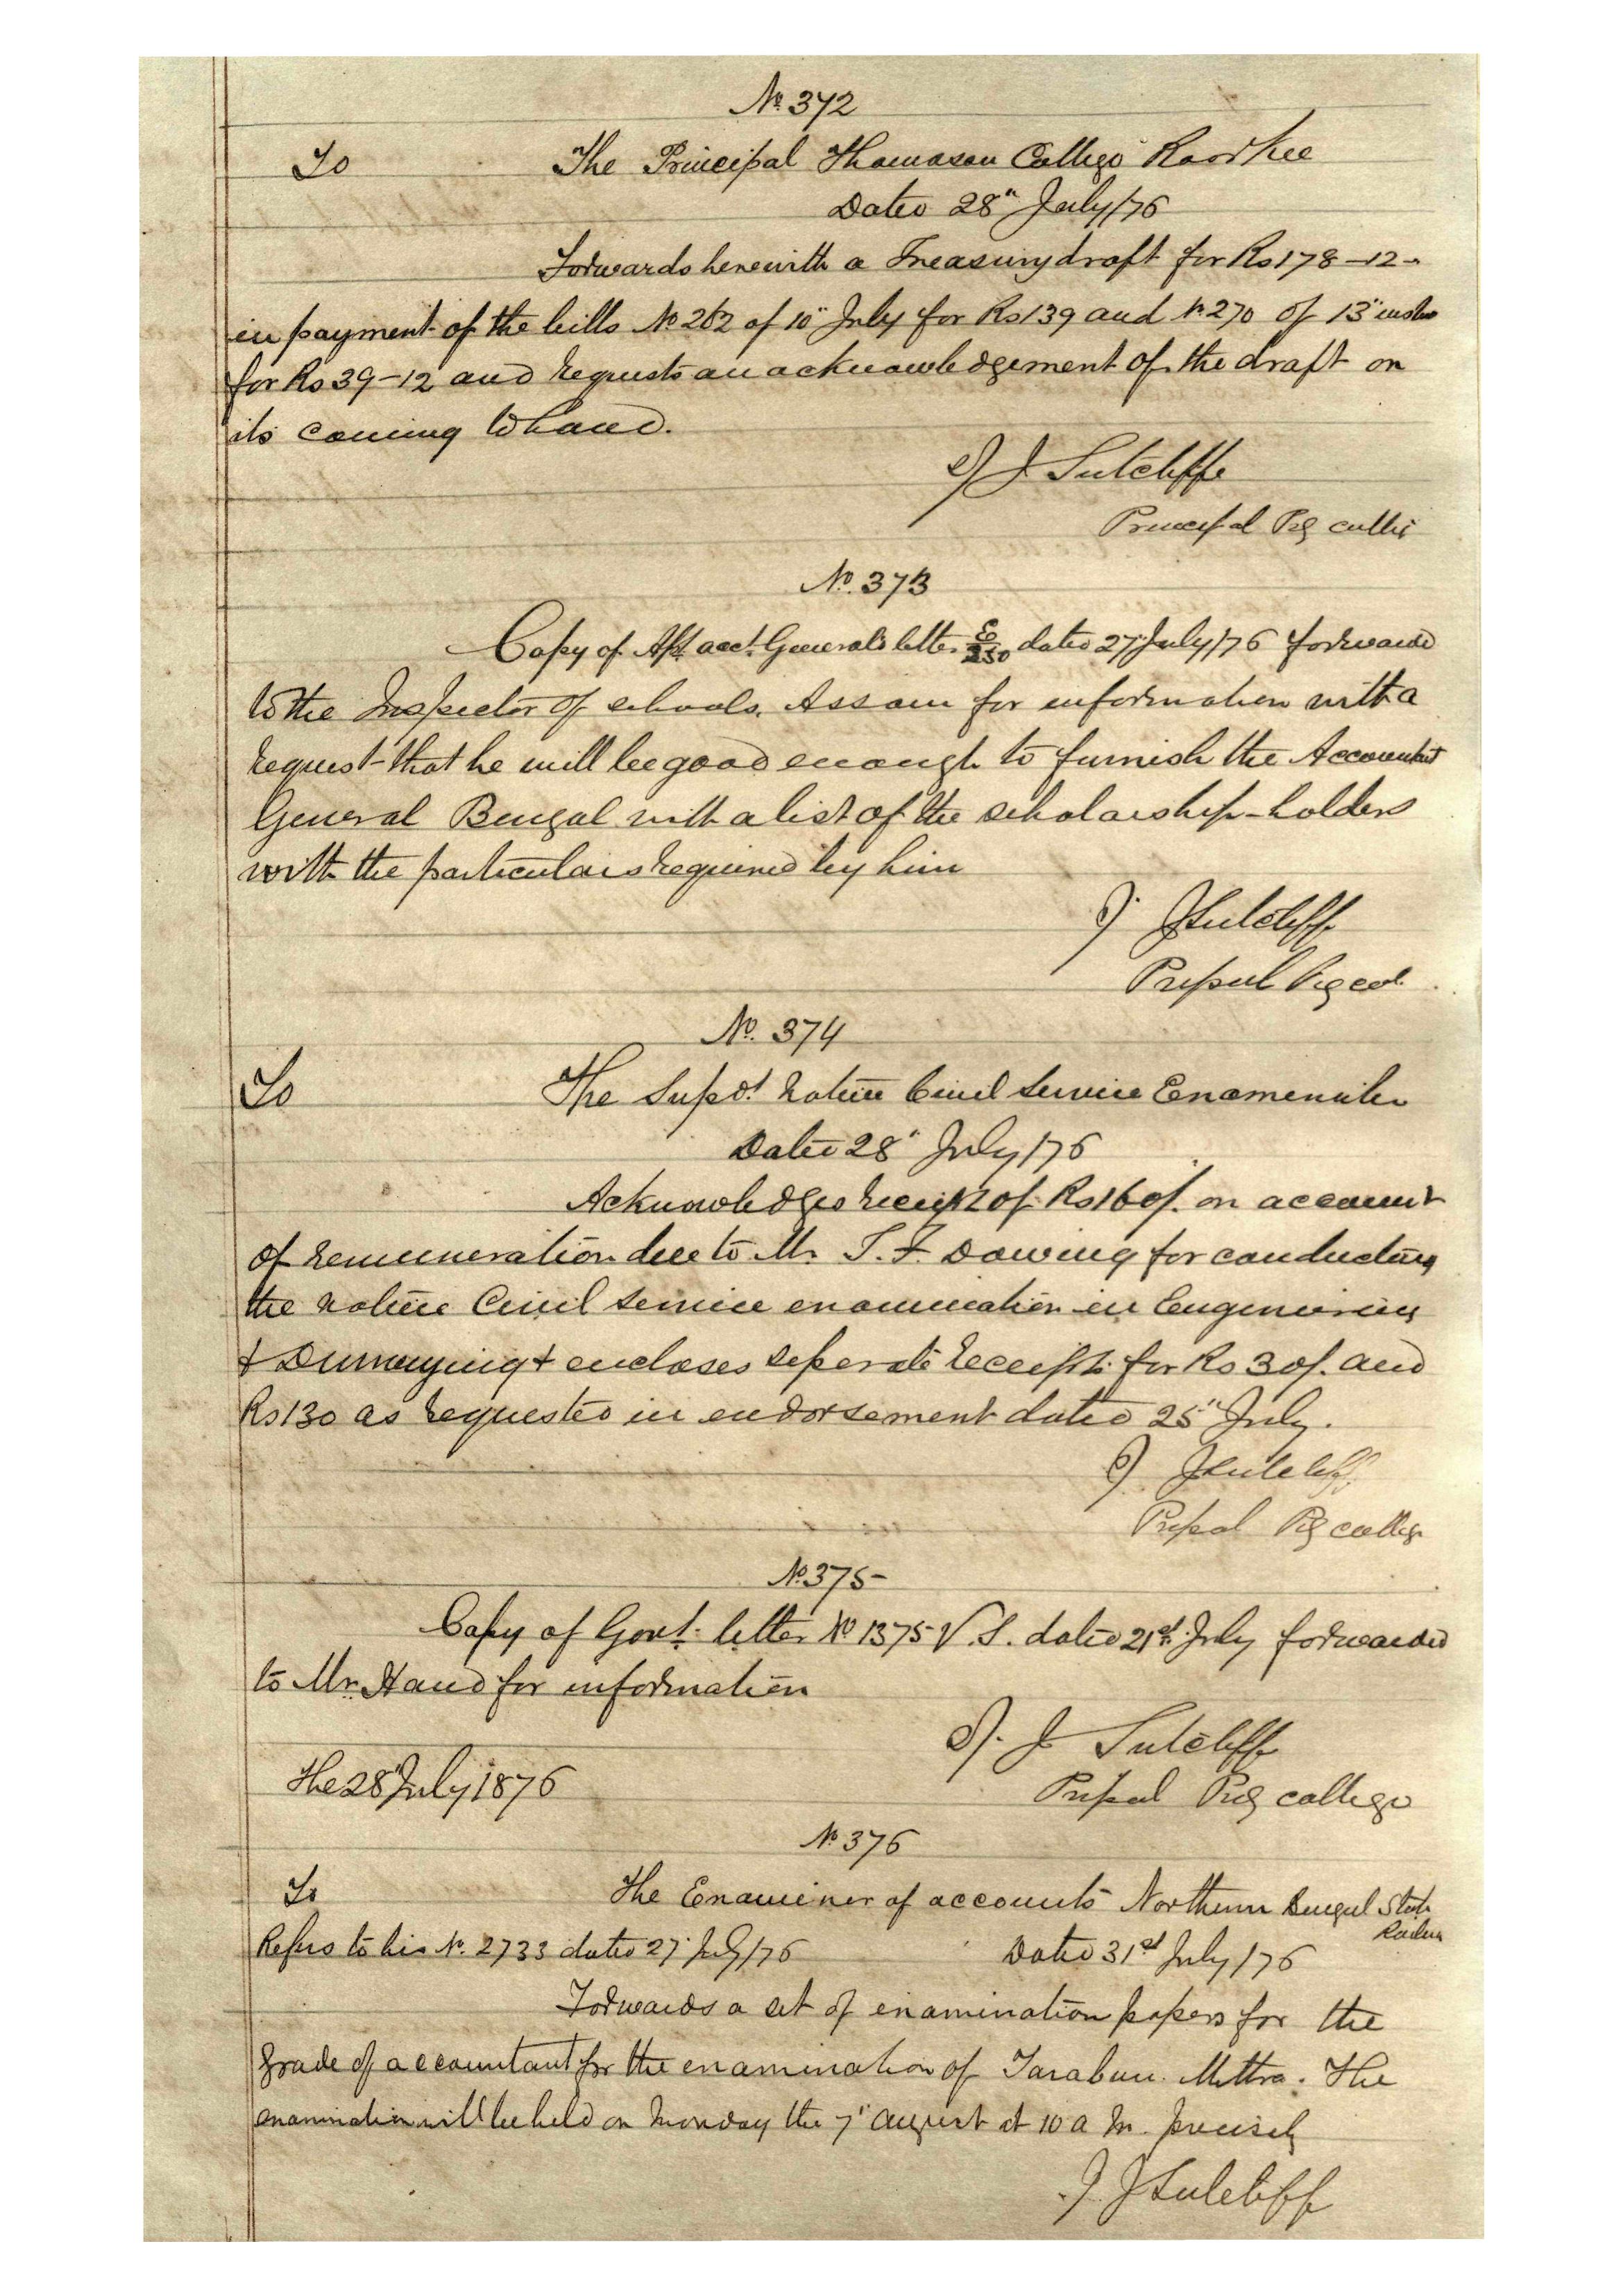 No. 372
To The Principal Thomason College Roorkee
Dated 28" July/76
Forwards herewith a Treasury draft for Rs 178-12-
in payment of the bills No 262 of 10" July for Rs 139 and No 270 of 13"
for Rs 39-12 and requests an acknowledgement of the draft on
its coming to hand.
S) J Sutcliffe
Principal
No. 373
Copy of Asst. acct. General's letter dated 27" July/76 forwarded
to the Inspector of schools, Assam for information with a
request that he will be good enough to furnish the Accountant
General Bengal with a list of the scholarship-holders
with the particulars required by him
S) J Sutcliffe
No. 374
To The Supdt. Native Civil Service Examination
Dated 28" July/76
Acknowledges receipt of Rs 160/. on account
of remuneration due to Mr for conducting
the Native Civil Service examination in Engineering
& & encloses seperate receipts for Rs 30/. and
Rs 130 as requested in endorsement dated 25" July.
S) J Sutcliffe
No. 375-
Copy of Govt. letter No 1375 dated 21st July forwarded
to Mr. Hand for information
S). J Sutcliffe
The 28" July 1876
college
No 376
To The Examiner of accounts Northern Bengal State
Refers to his No. 2733 dated 27" July/76 Dated 31st July/76
Forwards a set of examination papers for the
grade of accountant for the examination of Mittra. The
examination will be held on Monday the 7" August at 10 a m. precisely
S) J Sutcliff